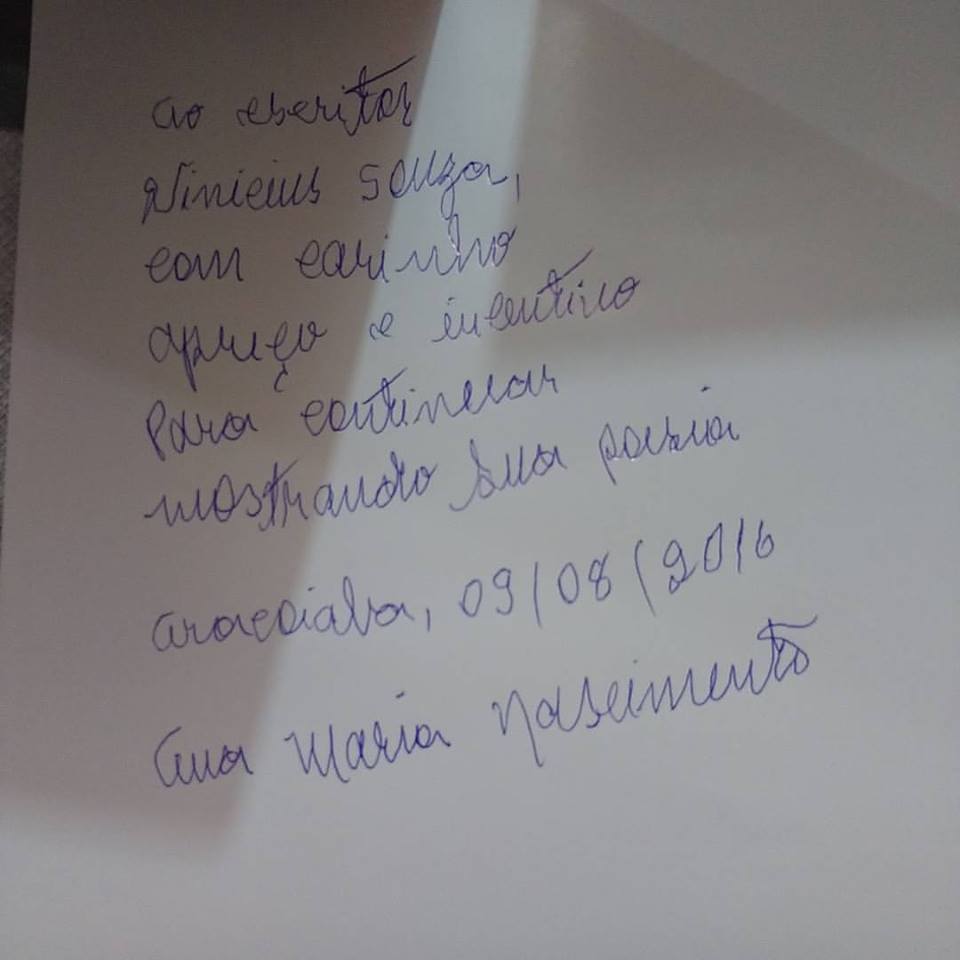 ao escritor
Vinicius Souza,
com carinho
apreço e incentivo
para continuar
mostrando sua poesia
Aracoiaba, 09/08/2016
Ana Maria Nascimento